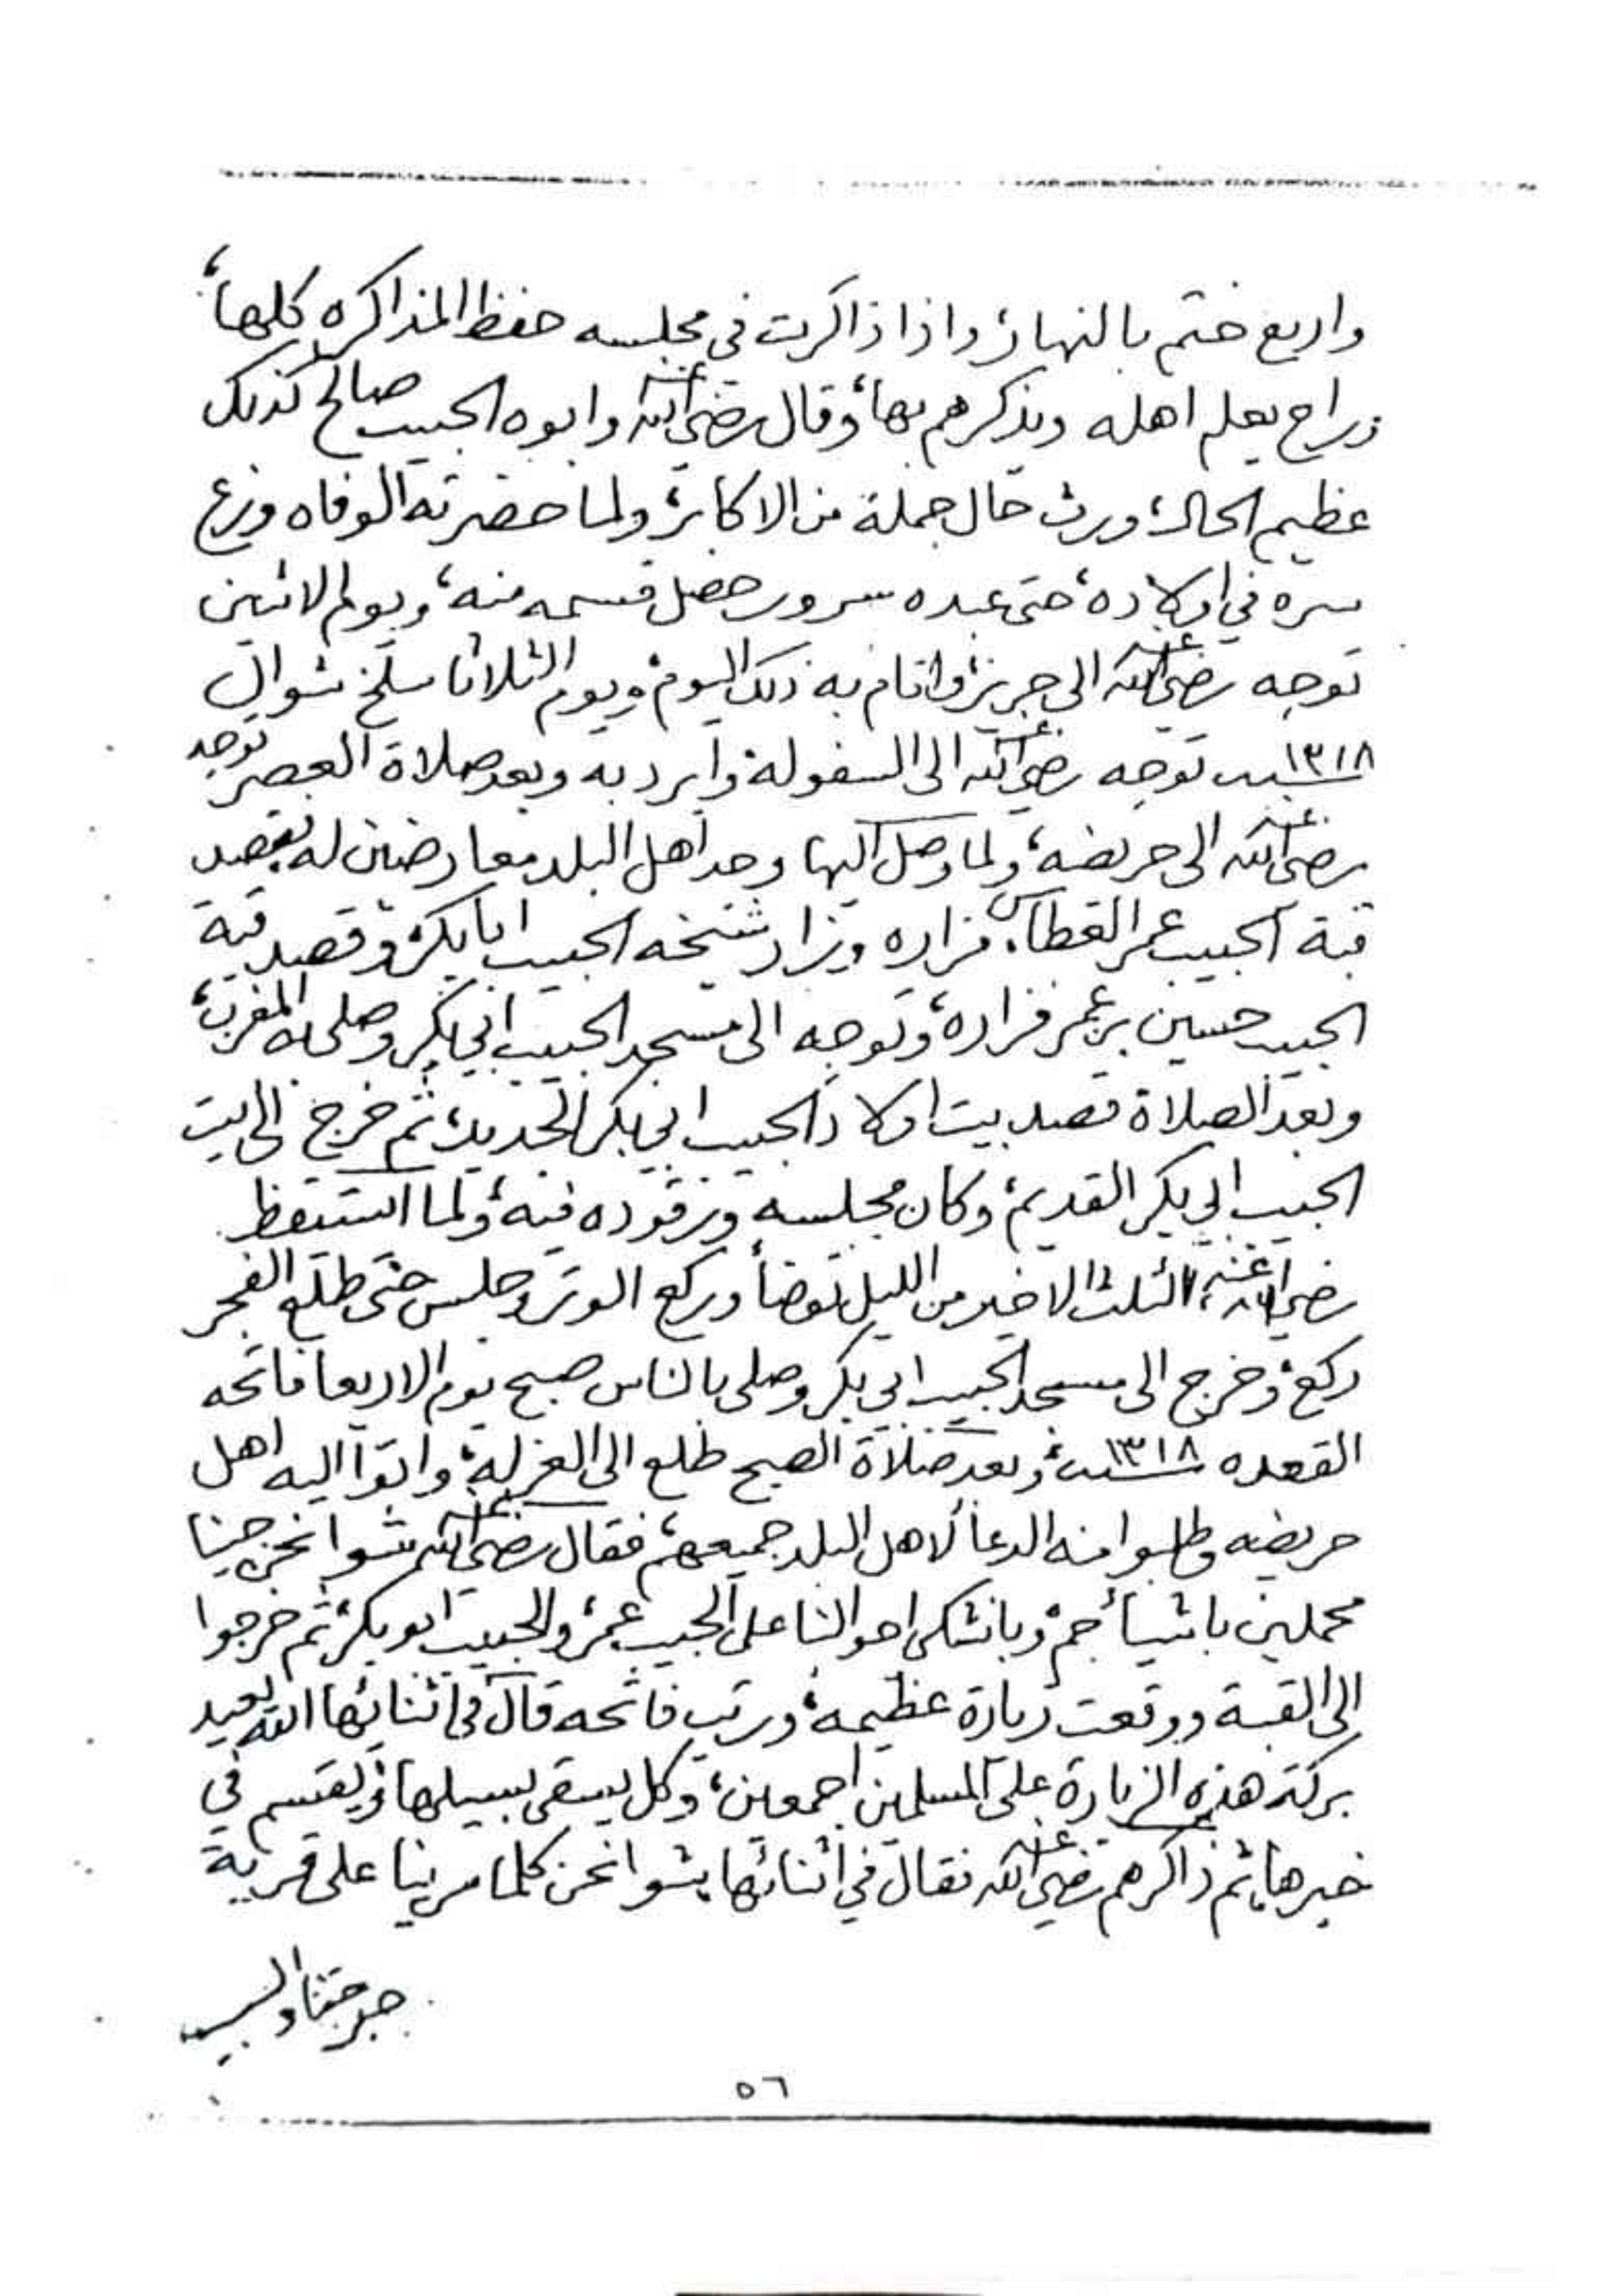 واربع ختم بالنهار، واذا ذاكرت في مجلسه حفظ المذاكره كلها،
وراح يعلم اهله ويذكرهم بها، وقال رضي الله عنه وابوه الحبيب صالح كذلك
عظيم الحال، ورث حال جملة من الاكابر، ولما حضرته الوفاه وزع
سره في اولاده، حتى عبده سرور حصل قسمه منه، ويوم الاثنين
توجه رضي الله عنه الى جريز، واقام به ذلك اليوم، ويوم الثلاثا سلخ شوال
سنة ١٣١٨ توجه رضي الله عنه الى السفولة وابرد به وبعد صلاة العصر توجه
رضي الله عنه الى حريضه، ولما وصل اليها وجد اهل البلد معارضين له، فقصد
قبة الحبيب عمر العطاس فزاره وزار شيخه الحبيب ابابكر، وقصد قبة
الحبيب حسين بن عمر فزاره، وتوجه الى مسجد الحبيب ابي بكر وصلى به المغرب،
وبعد الصلاة قصد بيت اولاد الحبيب ابي بكر الجديد، ثم خرج الى بيت
الحبيب ابي بكر القديم، وكان مجلسه ورقوده فيه، ولما استيقظ
رضي الله عنه الثلث الاخير من الليل توضأ وركع الوتر وجلس حتى طلع الفجر
ركع، وخرج الى مسجد الحبيب ابي بكر وصلى بالناس صبح يوم الاربعا فاتحه
القعده سنة ١٣١٨، وبعد صلاة الصبح طلع الى الغرله، واتوا اليه اهل
حريضه وطلبوا منه الدعا لاهل البلد جميعهم، فقال رضي الله عنه شوا نحن جينا
محملين باشيأ جم، وبانشكي احوالنا على الحبيب عمر، والحبيب ابو بكر، ثم خرجوا
الى القبة ووقعت زيارة عظيمه، ورتب فاتحه قال في اثنائها الله يعيد
بركة هذه الزيارة على المسلمين اجمعين، وكل يسقى بسيلها، ويقتسم في
خيرها، ثم ذاكرهم رضي الله عنه فقال في اثنائها شوا نحن كلما مرينا على قرية
٥٦